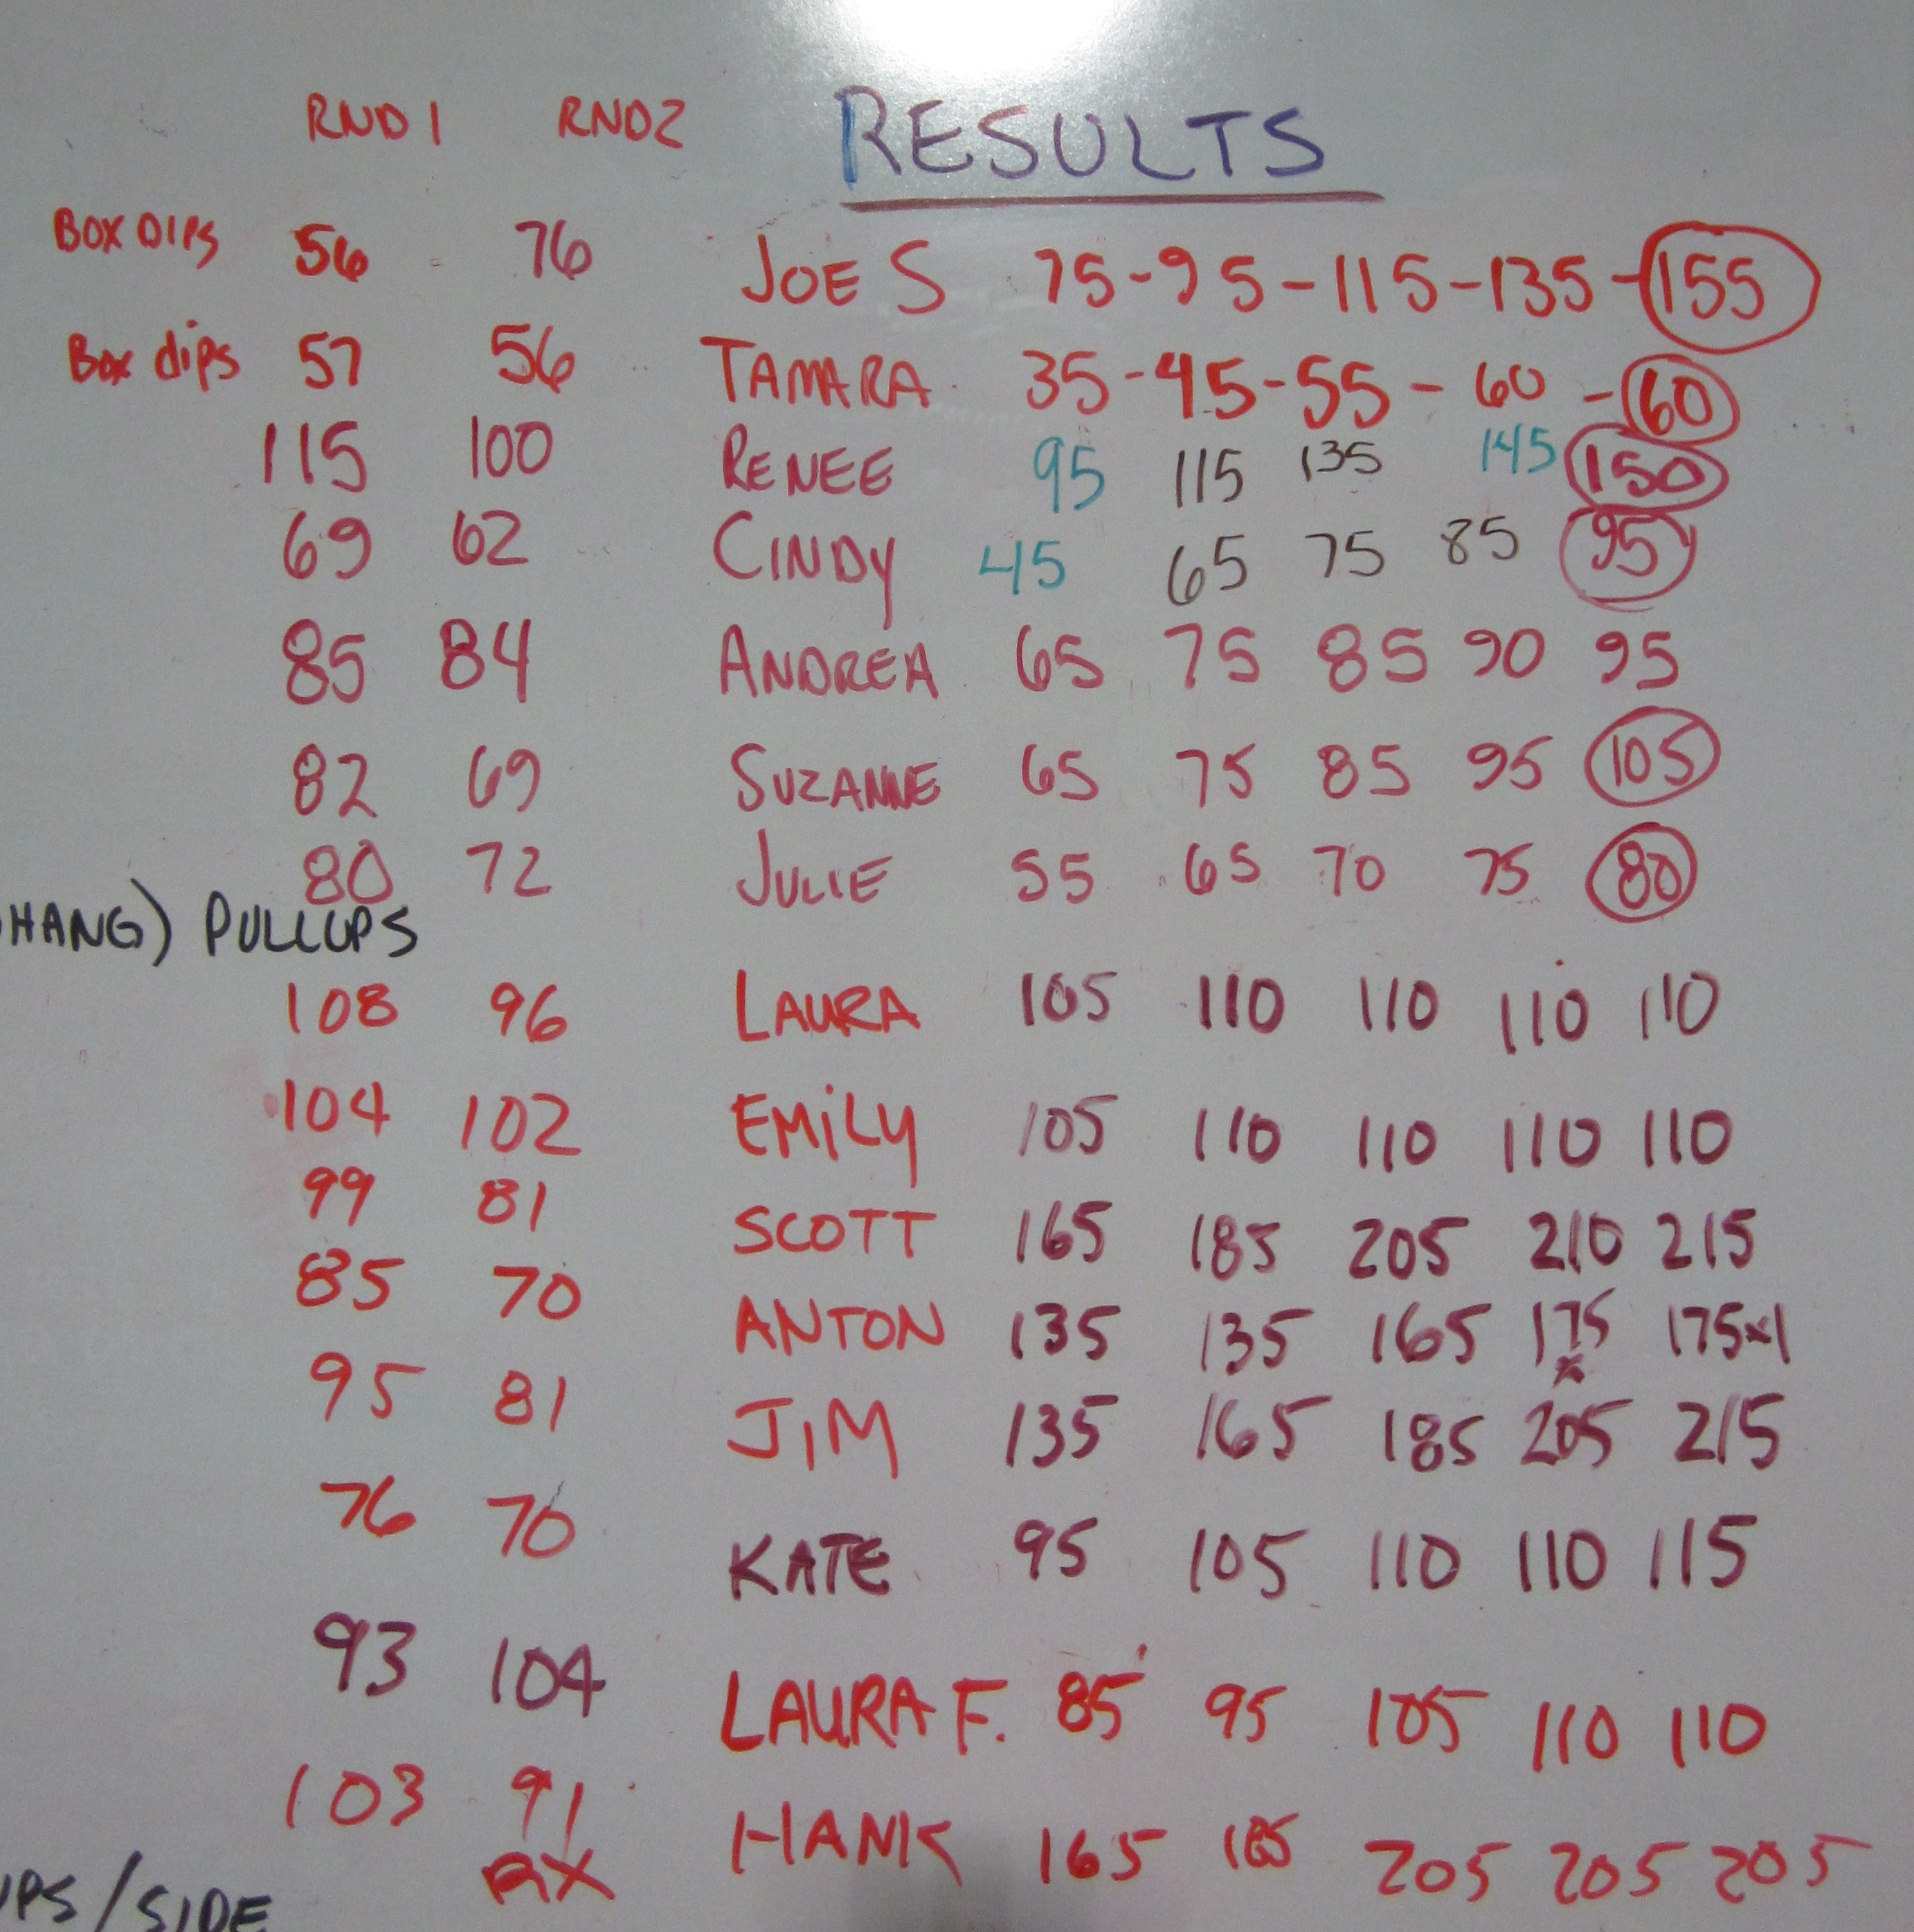 RND 1 RND2 RESULTS
BOX DIPS 56 76 JOE S 75-95-115-135-155
Box dips 57 56 TAMARA 35-45-55-60-60
115 100 RENEE 95 115 135 145 150
69 62 CINDY 45 65 75 85 95
85 84 ANDREA 65 75 85 90 95
82 69 SUZANNE 65 75 85 95 105
80 72 JULIE 55 65 70 75 80
HANG) PULLUPS
108 96 LAURA 105 110 110 110 110
104 102 EMiLY 105 110 110 110 110
99 81 SCOTT 165 185 205 210 215
85 70 ANTON 135 135 165 175 175x1
95 81 JiM 135 165 185 205 215
76 70 KATE 95 105 110 110 115
93 104 LAURA F. 85 95 105 110 110
103 91 HANK 165 185 205 205 205
RX
UPS/SIDE